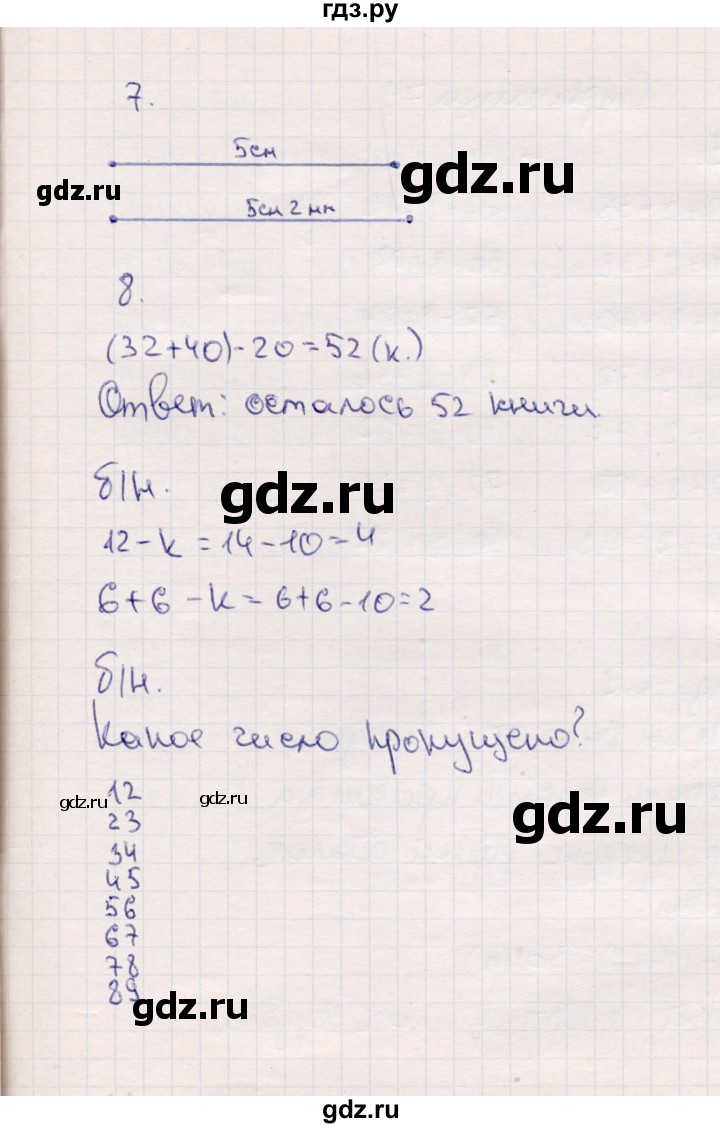 гдз.ру
7.
5см
gdz.ru
gdz.ru
5см 2 мм
8.
(32+40)-20=52(к.)
Ответ: осталось 52 книги.
б/н.
gdz.ru
12-к=14-10=4
6+6-к=6+6-10=2
б/н.
Какое число пропущено?
12
gdz.ru
gdz.ru
23
gdz.ru
34
45
56
67
78
89
gdz.ru
gdz.ru